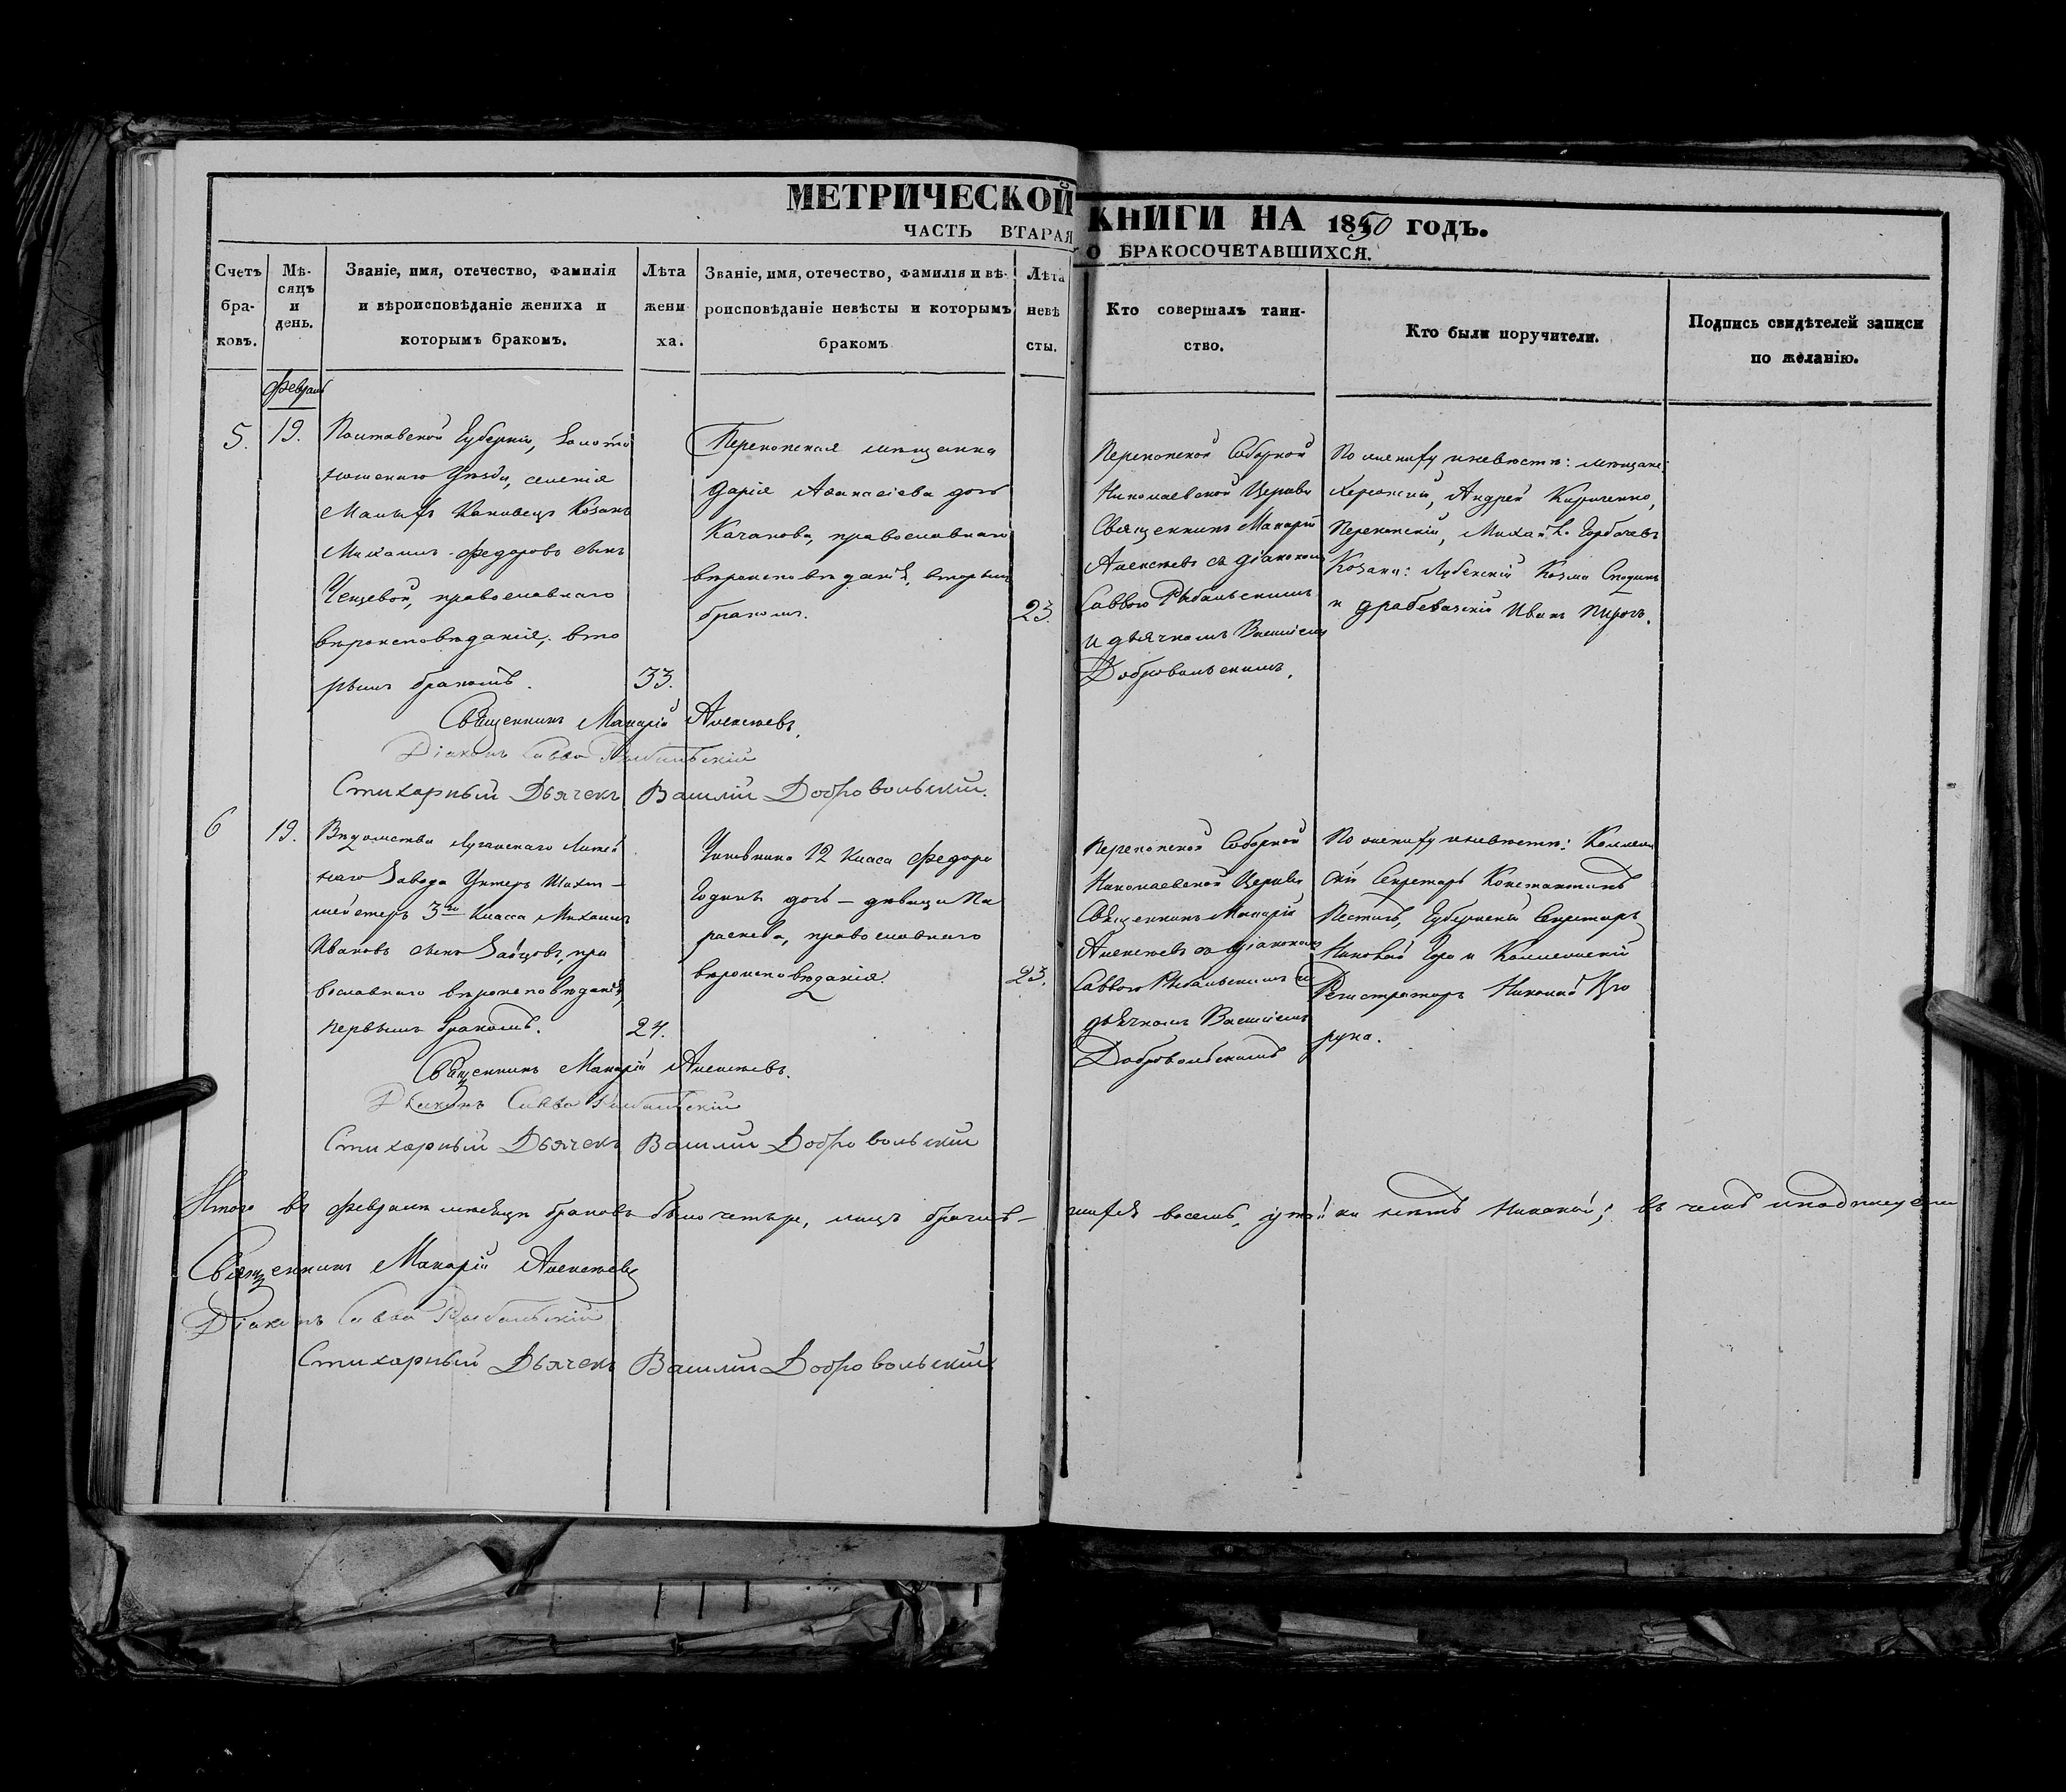 МЕТРИЧЕСКОЙ КНИГИ НА 1850 ГОДЪ.
ЧАСТЬ ВТАРАЯ О БРАКОСОЧЕТАВШИХСЯ.
Счетъ
бра-
ковъ.
Мѣ-
сяцъ
и
день.
Званіе, имя, отечество, фамилія
и вѣроисповѣданіе жениха и
которымъ бракомъ.
Лѣта
жени
ха.
Званіе, имя, отечество, фамилія и вѣ-
роисповѣданіе невѣсты и которымъ
бракомъ
Лѣта
невѣ
сты.
Кто совершалъ таин-
ство.
Кто были поручители.
Подпись свидѣтелей записи
по желанію.
Февраль
5.
19.
Полтавской Губерніи, Золото
ношскаго Уѣзда, селенія
Козакъ
Михаилъ Федоровъ сынъ
православнаго
вѣроисповѣданія, вто
рымъ бракомъ.
33.
Перекопская мѣщанка
Дарія Аѳанасіева дочь
Качанова, православнаго
вѣроисповѣданія, вторымъ
бракомъ.
23.
Перекопской Соборной
Николаевской Церкви
Священникъ Макарій
Алексѣевъ съ діакономъ
Саввою Рыбальскимъ
и дьячкомъ Василіемъ
Добровольскимъ.
По жениху и невѣстѣ: мѣщане:
Херсонскій, Андрей Кириченко,
Перекопскій, Горбачевъ
Козаки: Лубенскій Козма
и Иванъ Пирогъ.
Священникъ Макарій Алексѣевъ.
Діаконъ Савва Рыбальскій
Стихарный Дьячекъ Василій Добровольскій.
6
19.
Вѣдомства Луганскаго Литей
наго Завода Унтеръ Шихт-
мейстеръ 3го Класса Михаилъ
Ивановъ сынъ Зайцовъ, пра
вославнаго вѣроисповѣданія,
первымъ бракомъ.
24.
Чиновника 12 Класа Федора
дочь - дѣвица Па
раскева, православнаго
вѣроисповѣданія.
23.
Перекопской Соборной
Николаевской Церкви
Священникъ Макарій
Алексѣевъ съ діакономъ
Саввою Рыбальскимъ и
дьячкомъ Василіемъ
Добровольскимъ
По жениху и невѣстѣ: Коллеж
скій Секретарь Константинъ
Губернскій Секретарь
Николай и Коллежскій
Регистраторъ Николай
Священникъ Макарій Алексѣевъ.
Діаконъ Савва Рыбальскій
Стихарный Дьячекъ Василій Добровольскій
Итого въ Февралѣ мѣсяцѣ браковъ было четыре, лицъ брачив-шихся восемь, нѣтъ никакой; въ чемъ и подписуемся
Священникъ Макарій Алексѣевъ
Діаконъ Савва Рыбальскій
Стихарный Дьячекъ Василій Добровольскій